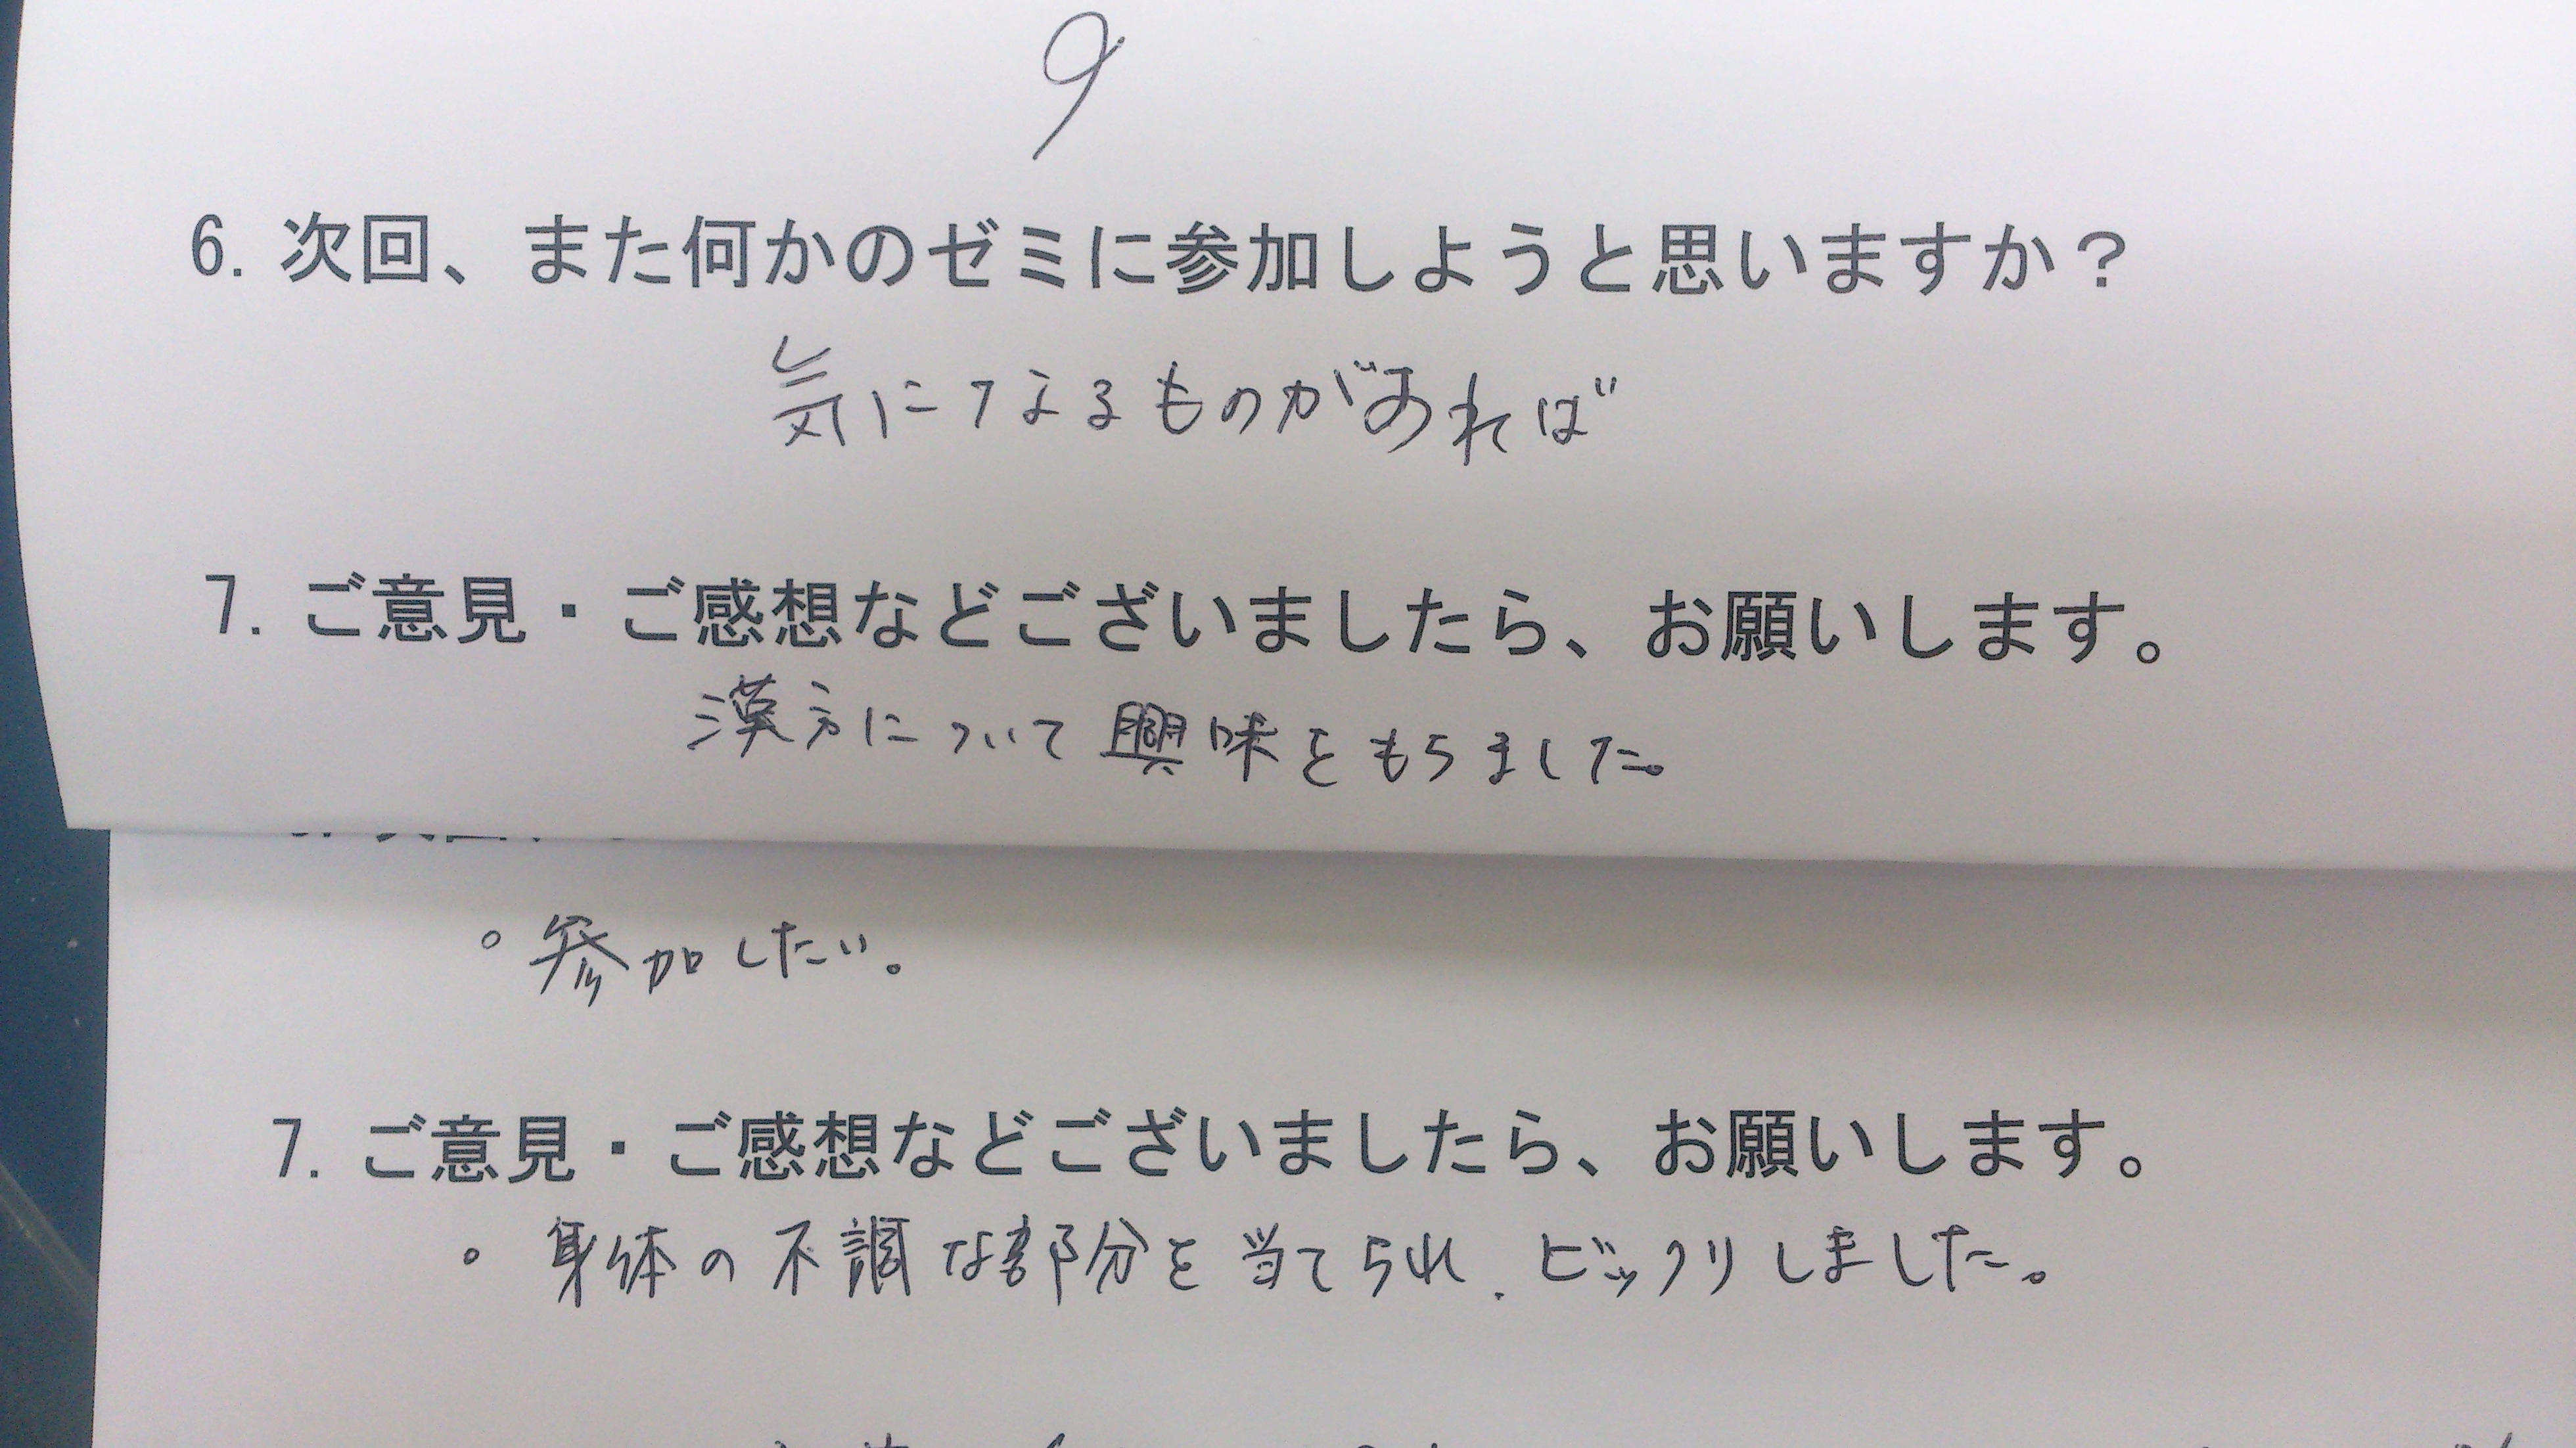 9
6. 次回、また何かのゼミに参加しようと思いますか？
気になるものがあれば
7. ご意見・ご感想などございましたら、お願いします。
漢方について興味をもちました。
。参加したい。
7. ご意見・ご感想などございましたら、お願いします。
。身体の不調な部分を当てられ、ビックリしました。